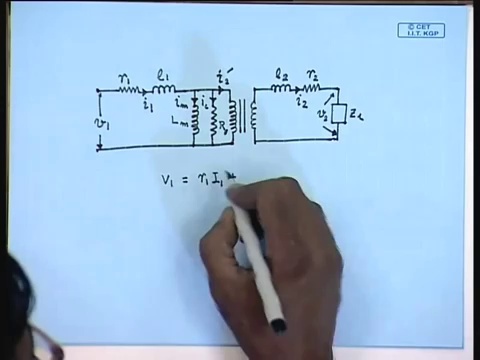 © CET
I.I.T. KGP
r₁ l₁ i₂′ l₂ r₂
i₁ iₘ i_c i₂
v₁ Lₘ R v₂ Z_L
V₁ = r₁ I₁ +